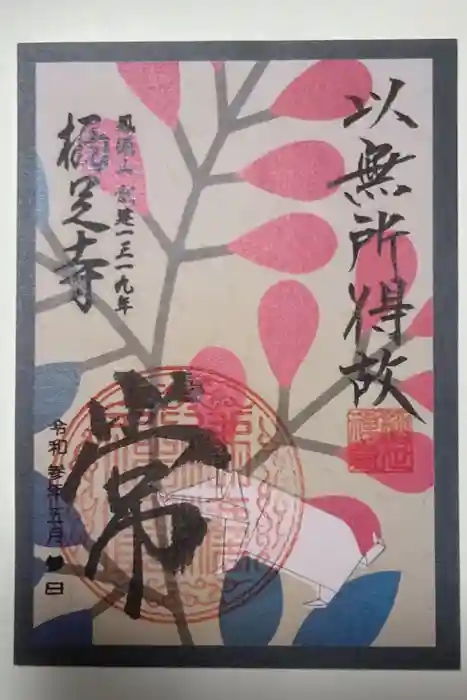 以無所得故
鳳儀山 創建一三一九年
栖足寺
常
令和参年五月 日